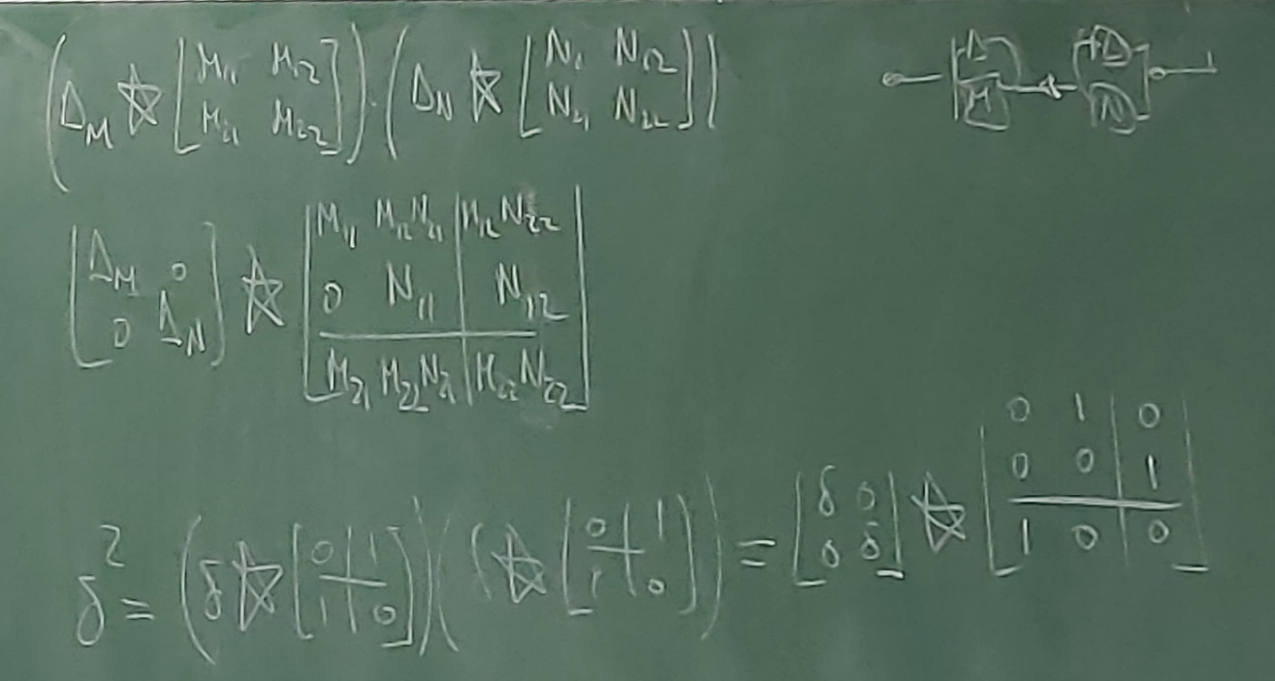 (Δ_M ☆ [M₁₁ M₁₂
M₂₁ M₂₂]) · (Δ_N ☆ [N₁₁ N₁₂
N₂₁ N₂₂])
Δ
M
Δ
N
[Δ_M 0
0 Δ_N] ☆ [M₁₁ M₁₂N₂₁ | M₁₂N₂₂
0 N₁₁ | N₁₂
M₂₁ M₂₂N₂₁ | M₂₂N₂₂]
δ² = (δ ☆ [0 | 1
1 | 0]) (δ ☆ [0 | 1
1 | 0]) = [δ 0
0 δ] ☆ [0 1 | 0
0 0 | 1
1 0 | 0]